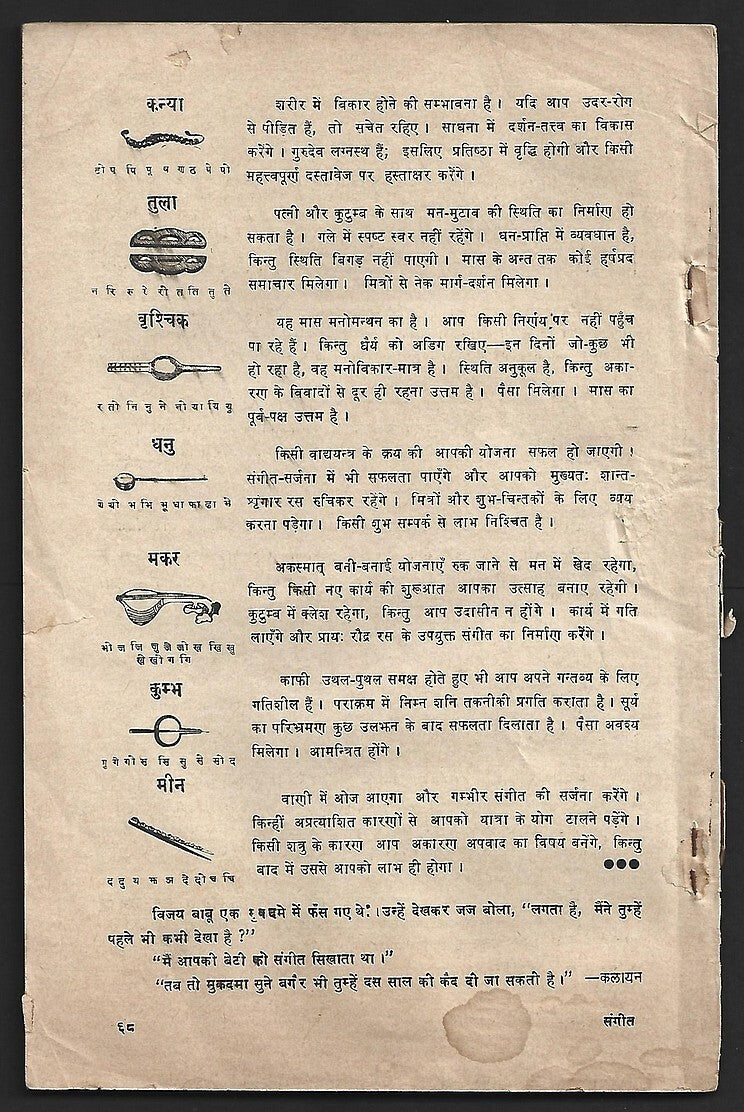 कन्या
शरीर में विकार होने की सम्भावना है। यदि आप उदर-रोग
से पीड़ित हैं, तो सचेत रहिए। साधना में दर्शन-तत्त्व का विकास
करेंगे। गुरुदेव लग्नस्थ हैं; इसलिए प्रतिष्ठा में वृद्धि होगी और किसी
महत्त्वपूर्ण दस्तावेज पर हस्ताक्षर करेंगे।
टो प पि पू ष ण ठ पे पो
तुला
पत्नी और कुटुम्ब के साथ मन-मुटाव की स्थिति का निर्माण हो
सकता है। गले में स्पष्ट स्वर नहीं रहेंगे। धन-प्राप्ति में व्यवधान है,
किन्तु स्थिति बिगड़ नहीं पाएगी। मास के अन्त तक कोई हर्षप्रद
समाचार मिलेगा। मित्रों से नेक मार्ग-दर्शन मिलेगा।
न रि रु रे रो त ति तु ते
वृश्चिक
यह मास मनोमन्थन का है। आप किसी निर्णय पर नहीं पहुँच
पा रहे हैं। किन्तु धैर्य को अडिग रखिए—इन दिनों जो-कुछ भी
हो रहा है, वह मनोविकार-मात्र है। स्थिति अनुकूल है, किन्तु अका-
रण के विवादों से दूर ही रहना उत्तम है। पैसा मिलेगा। मास का
पूर्व-पक्ष उत्तम है।
र तो नि नु ने नो या यि यु
धनु
किसी वाद्ययन्त्र के क्रय की आपकी योजना सफल हो जाएगी।
संगीत-सर्जना में भी सफलता पाएँगे और आपको मुख्यतः शान्त-
श्रृंगार रस रुचिकर रहेंगे। मित्रों और शुभ-चिन्तकों के लिए व्यय
करना पड़ेगा। किसी शुभ सम्पर्क से लाभ निश्चित है।
ये यो भ भि भू धा फा ढा भे
मकर
अकस्मात् बनी-बनाई योजनाएँ रुक जाने से मन में खेद रहेगा,
किन्तु किसी नए कार्य की शुरूआत आपका उत्साह बनाए रहेगी।
कुटुम्ब में क्लेश रहेगा, किन्तु आप उदासीन न होंगे। कार्य में गति
लाएँगे और प्रायः रौद्र रस के उपयुक्त संगीत का निर्माण करेंगे।
भो ज जि जु जे जो ख खि खु
खे खो ग गि
कुम्भ
काफी उथल-पुथल समक्ष होते हुए भी आप अपने गन्तव्य के लिए
गतिशील हैं। पराक्रम में निम्न शनि तकनीकी प्रगति कराता है। सूर्य
का परिभ्रमण कुछ उलझन के बाद सफलता दिलाता है। पैसा अवश्य
मिलेगा। आमन्त्रित होंगे।
गु गे गो स सि सु से सो द
मीन
वाणी में ओज आएगा और गम्भीर संगीत की सर्जना करेंगे।
किन्हीं अप्रत्याशित कारणों से आपको यात्रा के योग टालने पड़ेंगे।
किसी शत्रु के कारण आप अकारण अपवाद का विषय बनेंगे, किन्तु
बाद में उससे आपको लाभ ही होगा। ●●●
द दु य झ ञ दे दो च चि
विजय बाबू एक मुकदमे में फँस गए थे। उन्हें देखकर जज बोला, “लगता है, मैंने तुम्हें
पहले भी कभी देखा है ?”
“मैं आपकी बेटी को संगीत सिखाता था।”
“तब तो मुकदमा सुने बगैर भी तुम्हें दस साल की कैद दी जा सकती है।” —कलायन
६८ संगीत